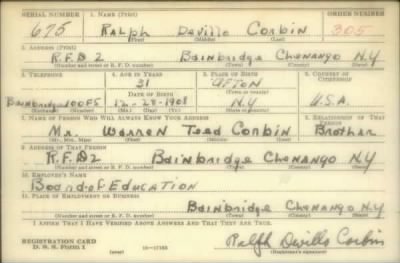 SERIAL NUMBER 1. NAME (Print) ORDER NUMBER
675 RALPH Deville Corbin 305
(First) (Middle) (Last)
2. ADDRESS (Print)
R.F.D 2 Bainbridge Chenango N.Y
(Number and street or R. F. D. number) (Town) (County) (State)
3. TELEPHONE 4. AGE IN YEARS 5. PLACE OF BIRTH 6. COUNTRY OF CITIZENSHIP
31 AFTON
DATE OF BIRTH (Town or county)
Bainbridge 100F5 12-28-1908 N.Y U.S.A.
(Exchange) (Number) (Mo.) (Day) (Yr.) (State or country)
7. NAME OF PERSON WHO WILL ALWAYS KNOW YOUR ADDRESS 8. RELATIONSHIP OF THAT PERSON
Mr. Warren Teed Corbin Brother
(Mr., Mrs., Miss) (First) (Middle) (Last)
9. ADDRESS OF THAT PERSON
R.F.D2 Bainbridge Chenango N.Y
(Number and street or R. F. D. number) (Town) (County) (State)
10. EMPLOYER'S NAME
Board-of EDUCATION
11. PLACE OF EMPLOYMENT OR BUSINESS
Bainbridge Chenango N.Y
(Number and street or R. F. D. number) (Town) (County) (State)
I AFFIRM THAT I HAVE VERIFIED ABOVE ANSWERS AND THAT THEY ARE TRUE.
REGISTRATION CARD
D. S. S. Form 1 (over) 16-17105 Ralph Deville Corbin
(Registrant's signature)